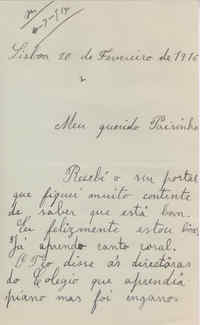 Lisboa 20 de Fevereiro de 1916
Meu querido Paisinho
Recebi o seu postal
que fiquei muito contente
de saber que está bom.
Eu felizmente estou bôa.
Já aprendo canto coral.
O Tio disse ás directôras
do Colegio que aprendia
piano mas foi engano.